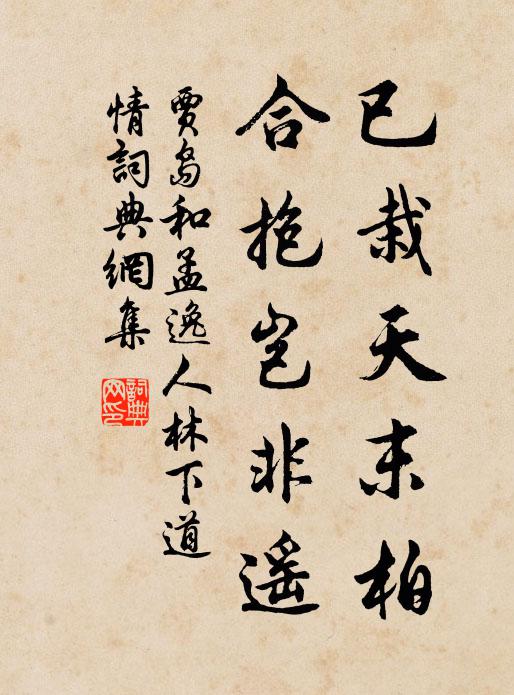 已栽天末柏
合抱岂非遥
賈岛和孟逸人林下道
情詞典網集
詞典网印